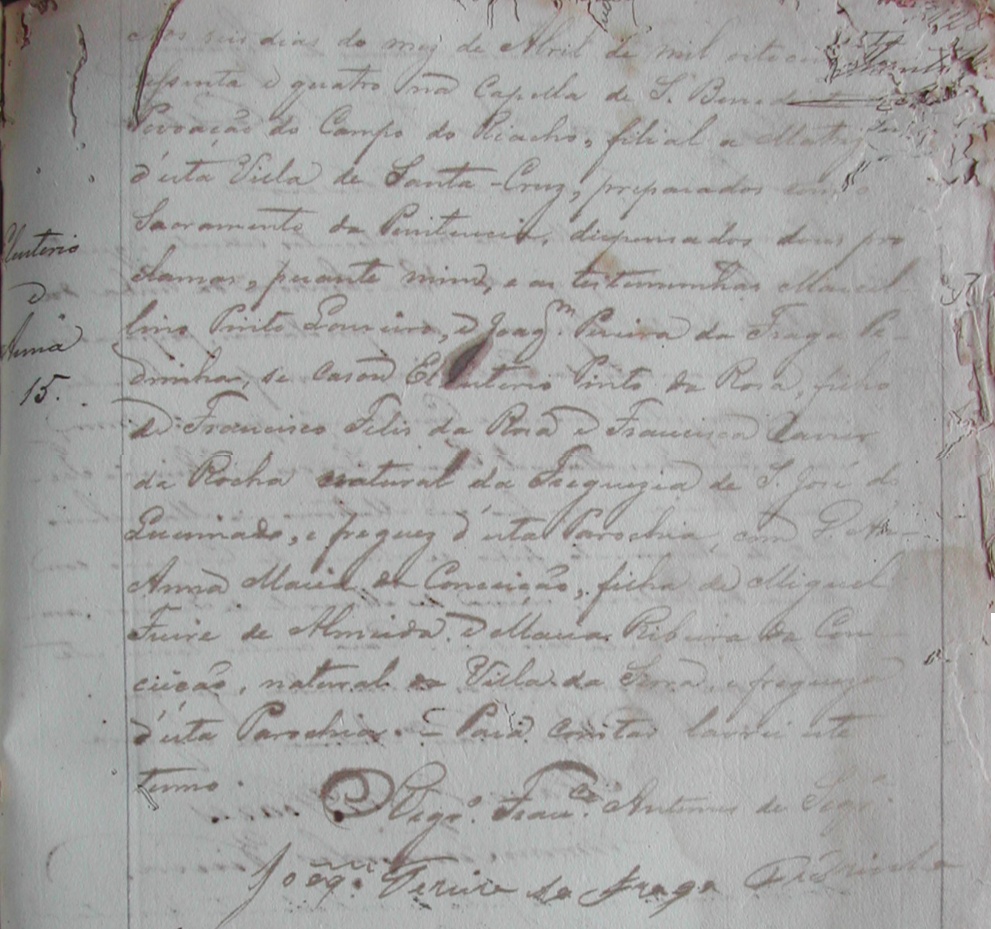 Aos seis dias do mez de Abril de mil oitocen
sessenta e quatro na Capella de S. Bened
Povoação do Campo do Riacho, filial a Matriz
d'esta Villa de Santa-Cruz, preparados com o
Sacramento da Penitencia, dispensados dous pro
clamas, perante mim, e as testemunhas Marcel
lino Pinto Loureiro, e Joaqm. Pereira da Fraga Pe
drinha, se casou Eleuterio Pinto da Rosa, filho
de Francisco Felis da Rosa e Francisca Xavier
da Rocha natural da Freguezia de S. José do
Queimado, e freguez d'esta Parochia, com D.
Anna Maria da Conceição, filha de Miguel
Freire de Almeida e Maria Ribeira da Con
ceição, natural da Villa da Serra, e fregueza
d'esta Parochia. = Para constar lavrei este
termo.
Franco. Antunes de
Joaqm. Pereira da Fraga Pedrinha
Eleuterio
e
Anna
15.